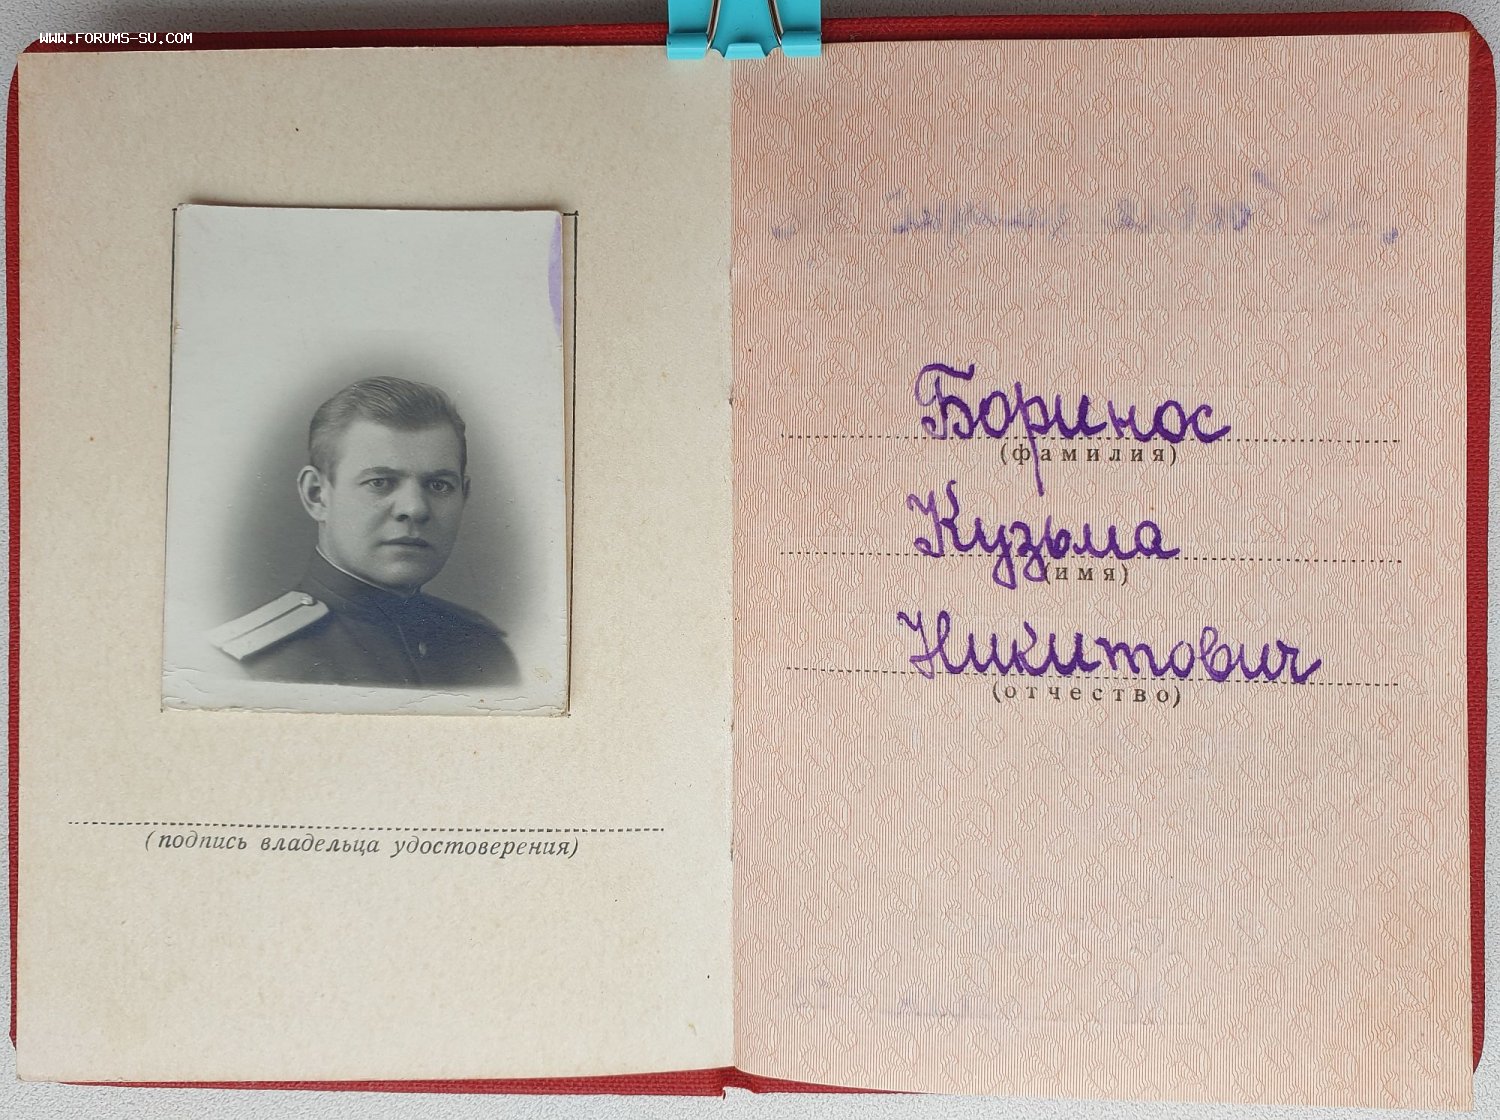 WWW.FORUMS-SU.COM
(подпись владельца удостоверения)
Боринос
(фамилия)
Кузьма
(имя)
Никитович
(отчество)